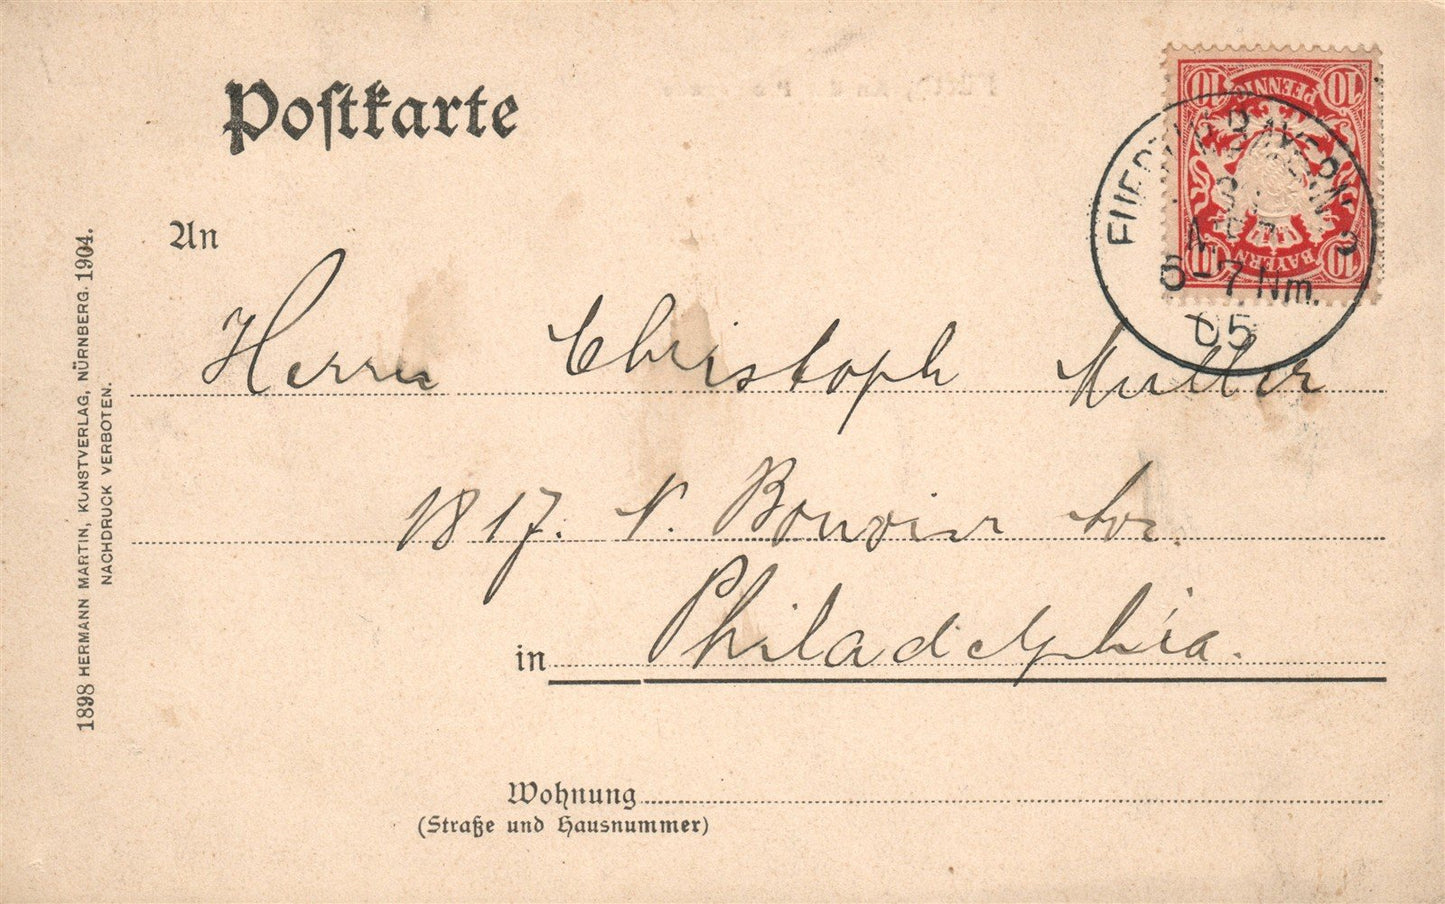 Postkarte
10 10
PFENNIG
BAYERN
10 10
BAYERN
3
5-7 Nm.
05
An
Herrn Christoph Muller
1817. N. Bouvier
in Philadelphia.
Wohnung
(Straße und Hausnummer)
1898 HERMANN MARTIN, KUNSTVERLAG, NÜRNBERG. 1904.
NACHDRUCK VERBOTEN.